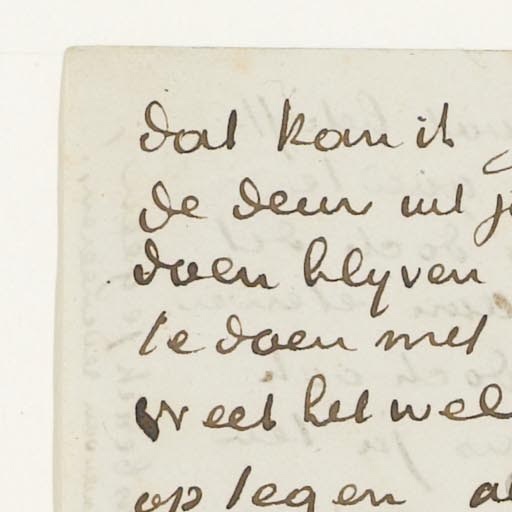 dat kan ik
de deur uit
doen blyven
te doen met
Weet het wel
op tegen